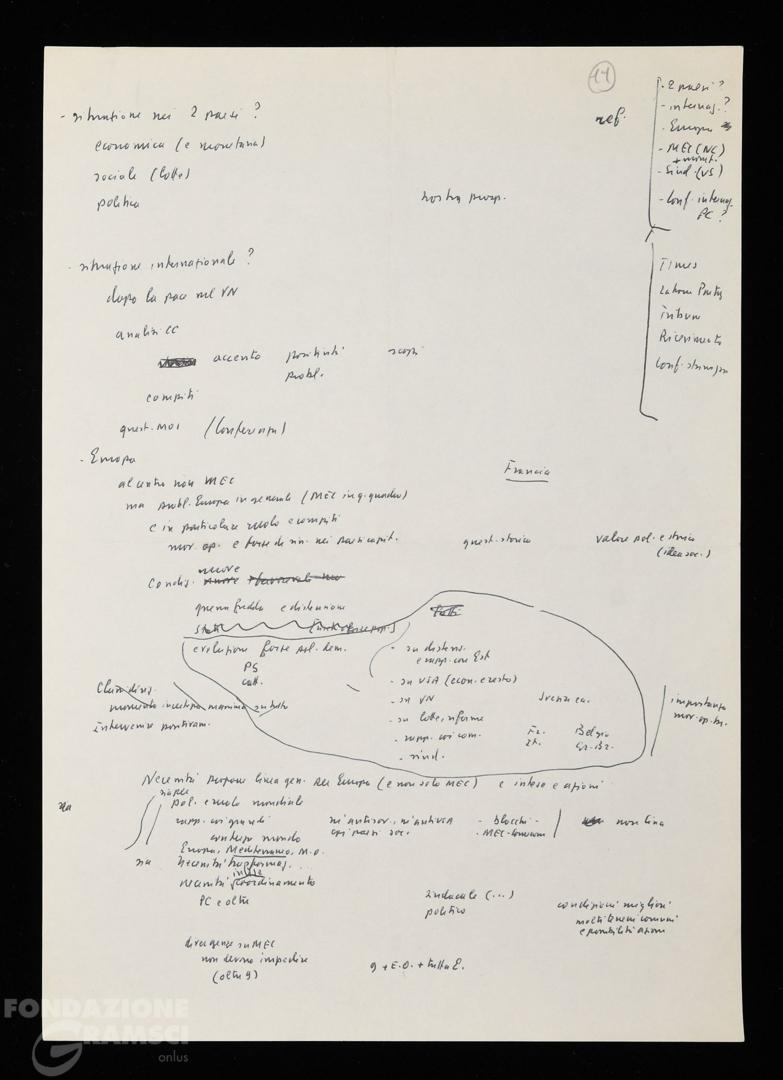 11
- situazione nei 2 paesi?
economica (e monetaria)
sociale (lotte)
politica
nostra prosp.
rif.
- 2 paesi?
- internaz.?
- Europa
- MEC (NC)
+ monet.
- Sind. (VS)
- Conf. internaz.
PC?
Times
Labour Party
Tribune
Ricevimento
Conf. stampa
- situazione internazionale?
dopo la pace nel VN
analisi CC
accento positività scopi
probl.
compiti
quest. MOI (Conferenza)
- Europa
al centro non MEC
ma probl. Europa in generale (MEC in q. quadro)
e in particolare ruolo e compiti
mov. op. e forze di sin. nei paesi capit.
Francia
quest. storica
valore pol. e storico
(idea soc.)
nuove
Condiz.
guerra fredda e distensione
evoluzione forze sol. dem.
PS
catt.
- su distens.
e rapp. con Est
- su USA (econ. e resto)
- su VN Svezia ea.
- su lotte, riforme
- rapp. coi com. Fr. Belgio
It. Gr. Br.
- sind.
importanza
mov. op. in.
intervenire positivam.
Necessità proporre linea gen. per Europa (e non solo MEC) e intese e azioni
sia per
pol. e ruolo mondiale
rapp. coi grandi
con terzo mondo
Europa, Mediterraneo, M.O.
né antisov., né antiUSA
coi paesi soc.
- blocchi -
- MEC -
non lina
sia necessità trasformaz. ...
intese
necessità coordinamento
PC e oltre
sindacale (...)
politico
condizioni migliori
molti terreni comuni
e possibilità azioni
divergenze su MEC
non devono impedire
(oltre 9)
9 + E.O. + tutta E.
FONDAZIONE
GRAMSCI
onlus